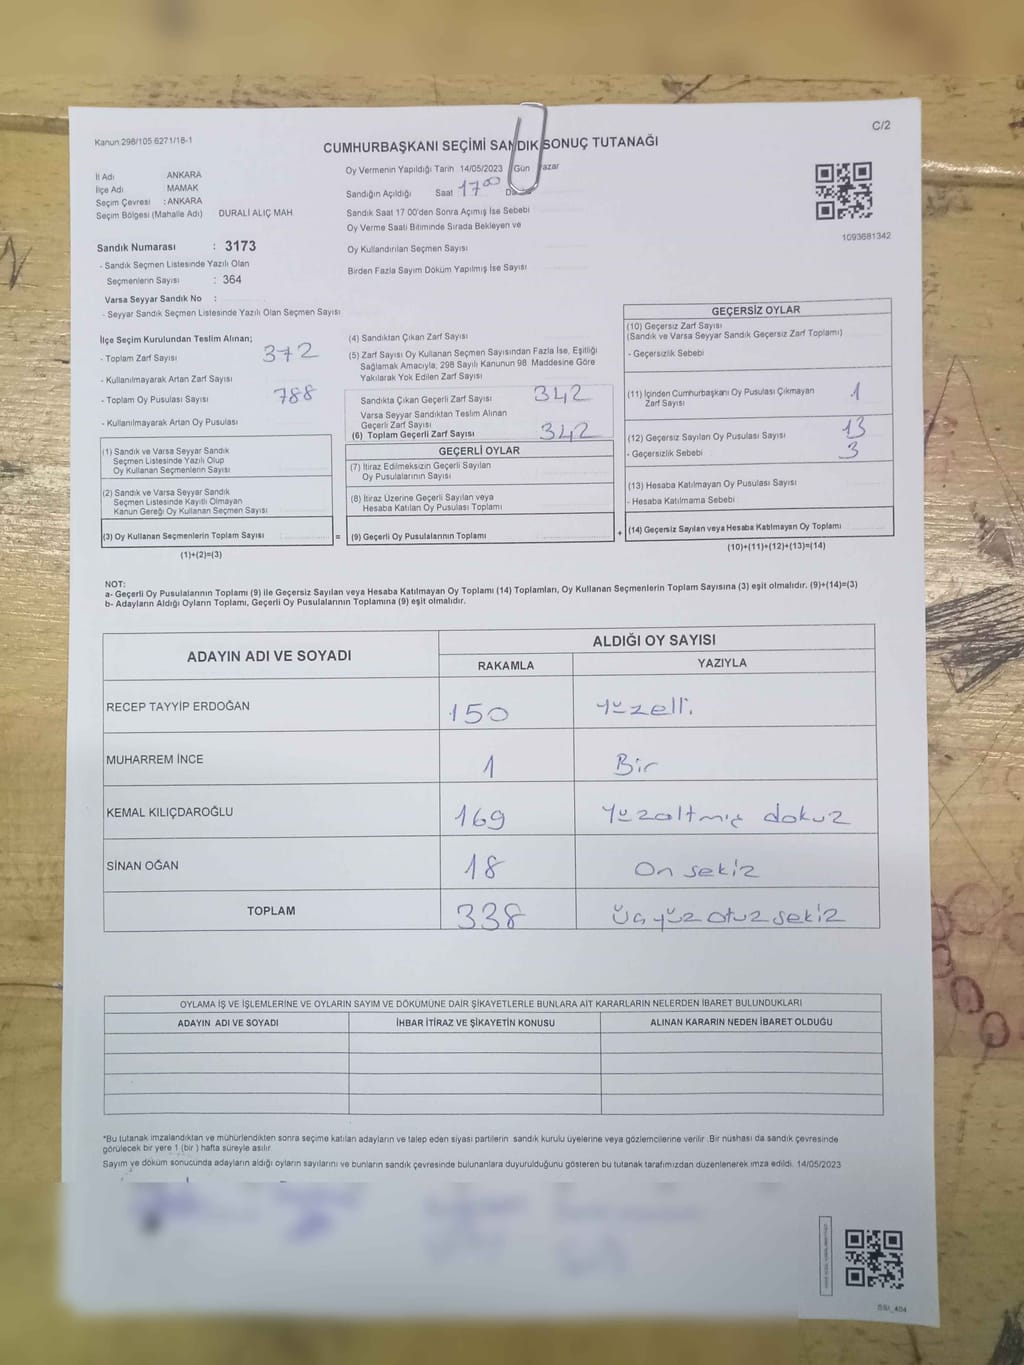 C/2
Kanun:298/105 6271/18-1
CUMHURBAŞKANI SEÇİMİ SANDIK SONUÇ TUTANAĞI
İl Adı ANKARA
İlçe Adı MAMAK
Seçim Çevresi : ANKARA
Seçim Bölgesi (Mahalle Adı) DURALİ ALIÇ MAH
Oy Vermenin Yapıldığı Tarih 14/05/2023 Gün
Sandığın Açıldığı Saat 17 00
Sandık Saat 17 00'den Sonra Açımış İse Sebebi
Oy Verme Saati Bitiminde Sırada Bekleyen ve
Oy Kullandırılan Seçmen Sayısı
Birden Fazla Sayım Döküm Yapılmış İse Sayısı
1093681342
Sandık Numarası : 3173
- Sandık Seçmen Listesinde Yazılı Olan
Seçmenlerin Sayısı : 364
Varsa Seyyar Sandık No :
- Seyyar Sandık Seçmen Listesinde Yazılı Olan Seçmen Sayısı
İlçe Seçim Kurulundan Teslim Alınan;
- Toplam Zarf Sayısı 372
- Kullanılmayarak Artan Zarf Sayısı
- Toplam Oy Pusulası Sayısı 788
- Kullanılmayarak Artan Oy Pusulası
(1) Sandık ve Varsa Seyyar Sandık
Seçmen Listesinde Yazılı Olup
Oy Kullanan Seçmenlerin Sayısı
(2) Sandık ve Varsa Seyyar Sandık
Seçmen Listesinde Kayıtlı Olmayan
Kanun Gereği Oy Kullanan Seçmen Sayısı
(3) Oy Kullanan Seçmenlerin Toplam Sayısı =
(1)+(2)=(3)
(4) Sandıktan Çıkan Zarf Sayısı
(5) Zarf Sayısı Oy Kullanan Seçmen Sayısından Fazla İse, Eşitliği
Sağlamak Amacıyla, 298 Sayılı Kanunun 98. Maddesine Göre
Yakılarak Yok Edilen Zarf Sayısı
Sandıkta Çıkan Geçerli Zarf Sayısı 342
Varsa Seyyar Sandıktan Teslim Alınan
Geçerli Zarf Sayısı
(6) Toplam Geçerli Zarf Sayısı 342
GEÇERLİ OYLAR
(7) İtiraz Edilmeksizin Geçerli Sayılan
Oy Pusulalarının Sayısı
(8) İtiraz Üzerine Geçerli Sayılan veya
Hesaba Katılan Oy Pusulası Toplamı
(9) Geçerli Oy Pusulalarının Toplamı +
GEÇERSİZ OYLAR
(10) Geçersiz Zarf Sayısı
(Sandık ve Varsa Seyyar Sandık Geçersiz Zarf Toplamı)
- Geçersizlik Sebebi
(11) İçinden Cumhurbaşkanı Oy Pusulası Çıkmayan
Zarf Sayısı 1
(12) Geçersiz Sayılan Oy Pusulası Sayısı 13
- Geçersizlik Sebebi 3
(13) Hesaba Katılmayan Oy Pusulası Sayısı
- Hesaba Katılmama Sebebi
(14) Geçersiz Sayılan veya Hesaba Katılmayan Oy Toplamı
(10)+(11)+(12)+(13)=(14)
NOT:
a- Geçerli Oy Pusulalarının Toplamı (9) ile Geçersiz Sayılan veya Hesaba Katılmayan Oy Toplamı (14) Toplamları, Oy Kullanan Seçmenlerin Toplam Sayısına (3) eşit olmalıdır. (9)+(14)=(3)
b- Adayların Aldığı Oyların Toplamı, Geçerli Oy Pusulalarının Toplamına (9) eşit olmalıdır.
ADAYIN ADI VE SOYADI ALDIĞI OY SAYISI
RAKAMLA YAZIYLA
RECEP TAYYİP ERDOĞAN 150 yüzelli
MUHARREM İNCE 1 Bir
KEMAL KILIÇDAROĞLU 169 yüzaltmış dokuz
SİNAN OĞAN 18 On sekiz
TOPLAM 338 Üçyüz otuz sekiz
OYLAMA İŞ VE İŞLEMLERİNE VE OYLARIN SAYIM VE DÖKÜMÜNE DAİR ŞİKAYETLERLE BUNLARA AİT KARARLARIN NELERDEN İBARET BULUNDUKLARI
ADAYIN ADI VE SOYADI İHBAR İTİRAZ VE ŞİKAYETİN KONUSU ALINAN KARARIN NEDEN İBARET OLDUĞU
*Bu tutanak imzalandıktan ve mühürlendikten sonra seçime katılan adayların ve talep eden siyasi partilerin sandık kurulu üyelerine veya gözlemcilerine verilir. Bir nüshası da sandık çevresinde
görülecek bir yere 1 (bir ) hafta süreyle asılır.
Sayım ve döküm sonucunda adayların aldığı oyların sayılarını ve bunların sandık çevresinde bulunanlara duyurulduğunu gösteren bu tutanak tarafımızdan düzenlenerek imza edildi. 14/05/2023